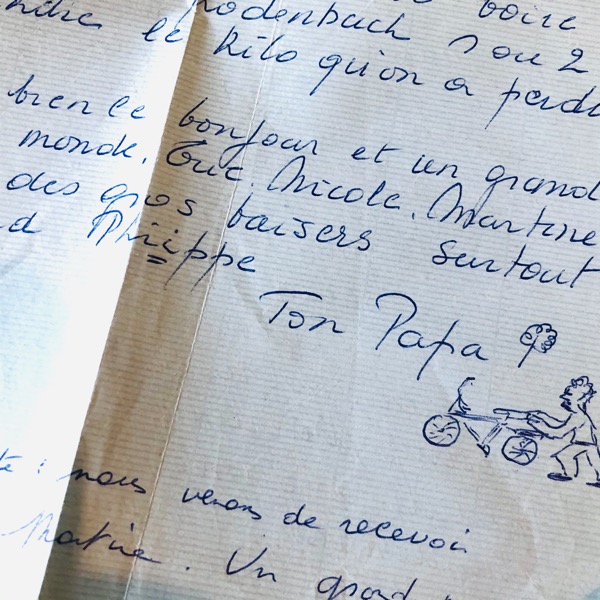 boire
Rodenbach 1 ou 2
le kilo qu'on a perdu
bien le bonjour et un grand
monde. Guc. Nicole. Martine
des gros baisers surtout
d Phiippe
Ton Papa
te : nous venons de recevoir
Martine. Un grand